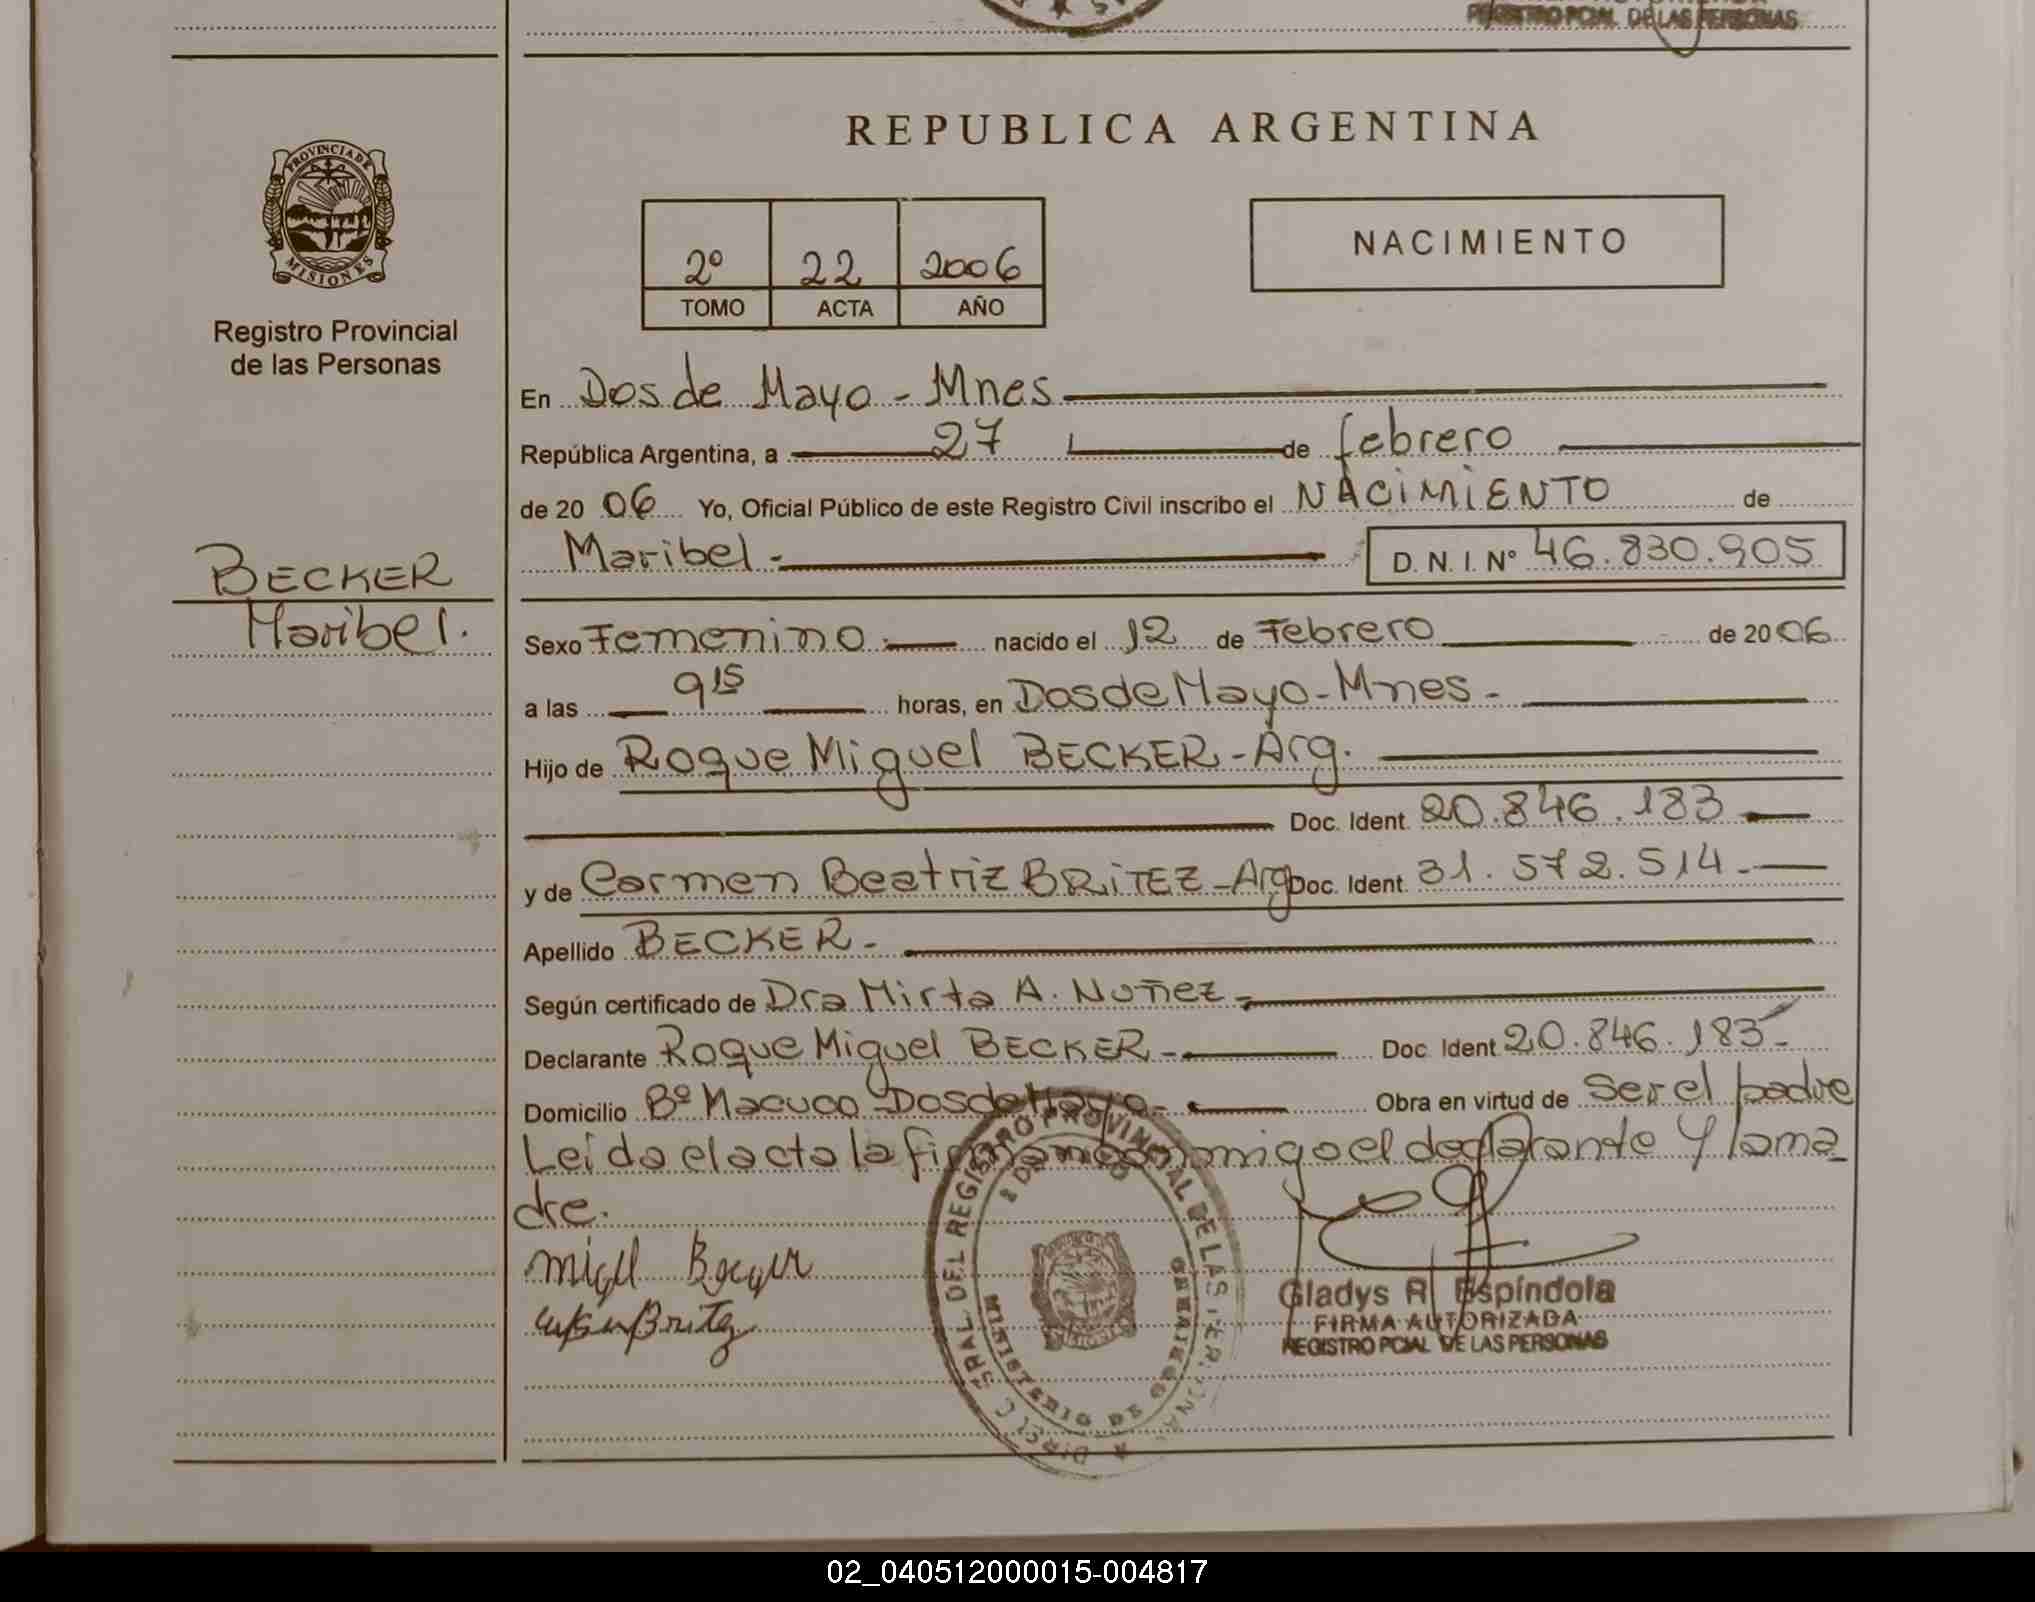 REGISTRO PCIAL. DE LAS PERSONAS
REPUBLICA ARGENTINA
PROVINCIA DE
MISIONES
Registro Provincial
de las Personas
2º 22 2006
TOMO ACTA AÑO
NACIMIENTO
En Dos de Mayo - Mnes
República Argentina, a 27 de febrero
de 20 06 Yo, Oficial Público de este Registro Civil inscribo el NACIMIENTO de
Maribel - D. N. I. Nº 46.830.905
BECKER
Maribel.
Sexo Femenino nacido el 12 de Febrero de 20 06
a las 9 15 horas, en Dos de Mayo - Mnes -
Hijo de Roque Miguel BECKER - Arg.
Doc. Ident. 20.846.183
y de Carmen Beatriz BRITEZ - Arg Doc. Ident. 31.572.514 -
Apellido BECKER -
Según certificado de Dra Mirta A. Nuñez -
Declarante Roque Miguel BECKER - Doc. Ident. 20.846.183 -
Domicilio Bº Macuco Dos de Mayo - Obra en virtud de Ser el padre
Leída el acta la firman conmigo el declarante y la ma
dre.
DEL REGISTRO PROVINCIAL DE LAS
MINISTERIO DE GOBIERNO
Gladys R. Espíndola
FIRMA AUTORIZADA
REGISTRO PCIAL. DE LAS PERSONAS
02_040512000015-004817